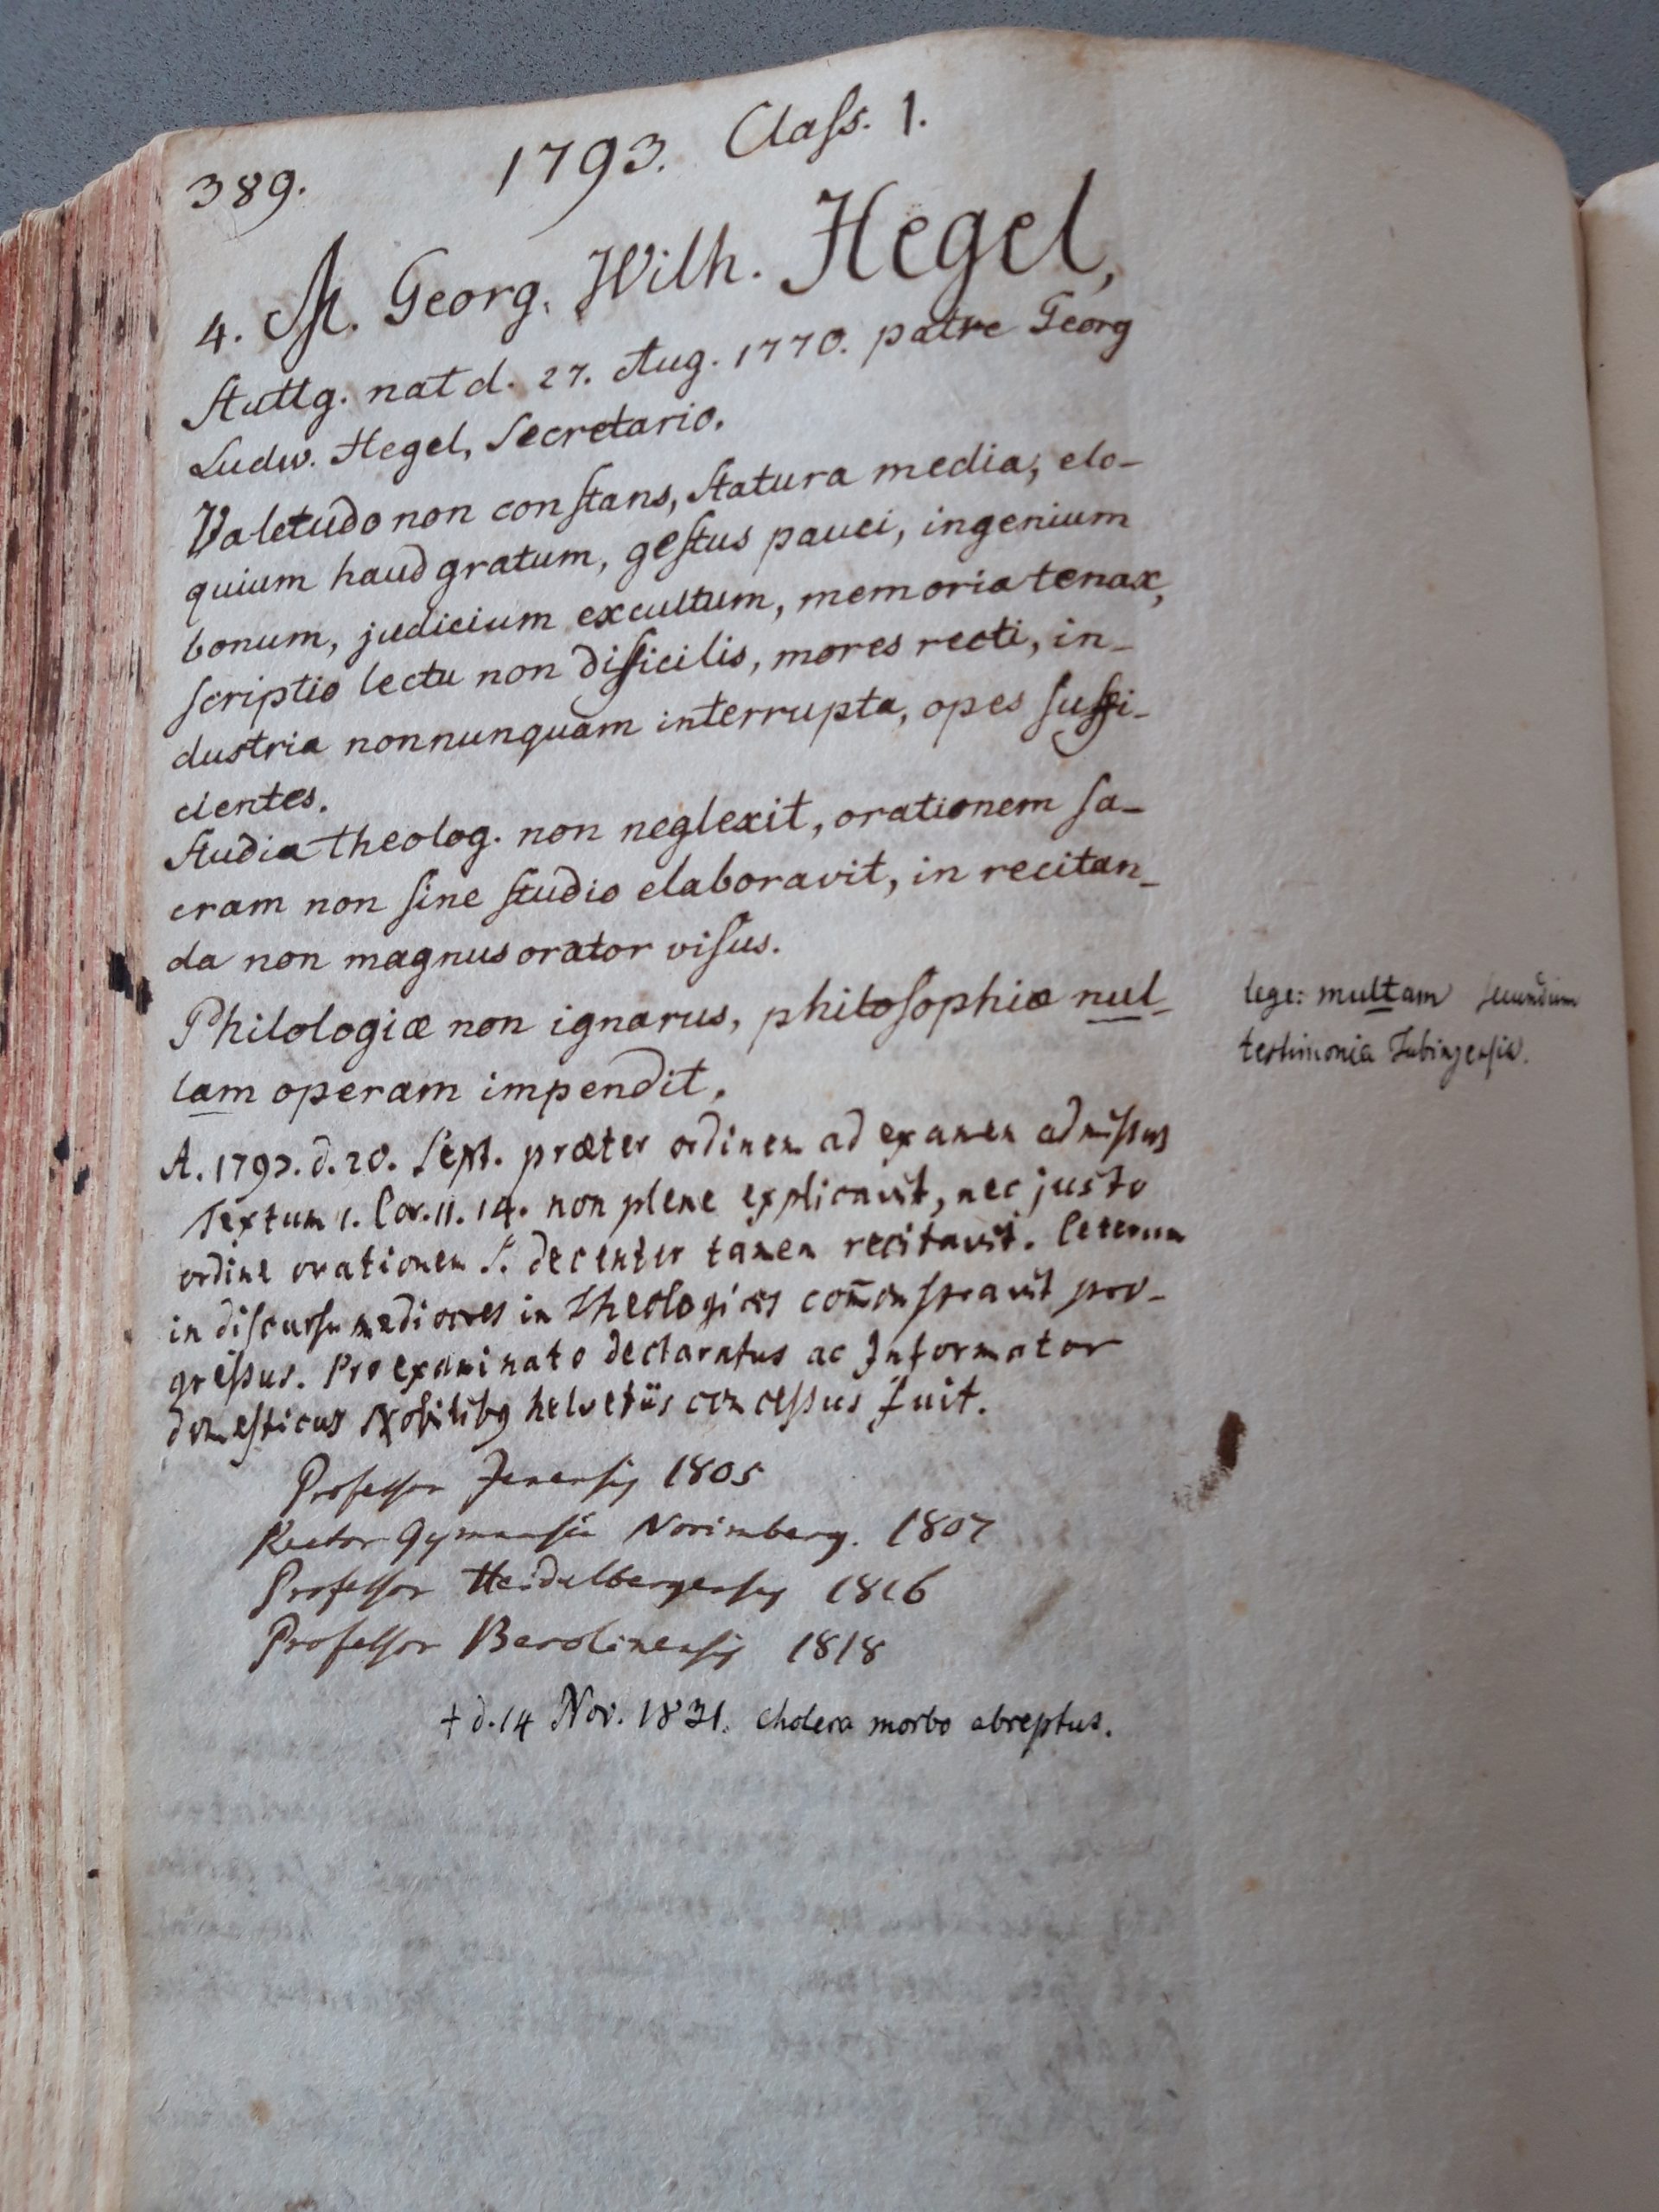 389. 1793. Class. 1.
4. M. Georg. Wilh. Hegel,
Stuttg. nat d. 27. Aug. 1770. patre Georg
Ludw. Hegel, Secretario.
Valetudo non constans, statura media, elo-
quium haud gratum, gestus pauci, ingenium
bonum, judicium excultum, memoria tenax,
scriptio lectu non difficilis, mores recti, in-
dustria nonnunquam interrupta, opes suffi-
cientes.
Studia theolog. non neglexit, orationem sa-
cram non sine studio elaboravit, in recitan-
da non magnus orator visus.
Philologiæ non ignarus, philosophiæ nul-
lam operam impendit.
lege: multam secundum
testimonia Tubingensia.
A. 1793. d. 20. Sept. præter ordinem ad examen admissus
Textum 1. Cor. II. 14. non plene explicavit, nec justo
ordine orationem S. decenter tamen recitavit. Ceterum
in discursu mediocres in Theologicis com̄onstravit pro-
gressus. Pro examinato declaratus ac Informator
domesticus Nobilibus helvetiis concessus fuit.
Professor Jenensis 1805
Rector Gymnasii Norimberg. 1807
Professor Heidelbergensis 1816
Professor Berolinensis 1818
† d. 14 Nov. 1831. cholera morbo abreptus.